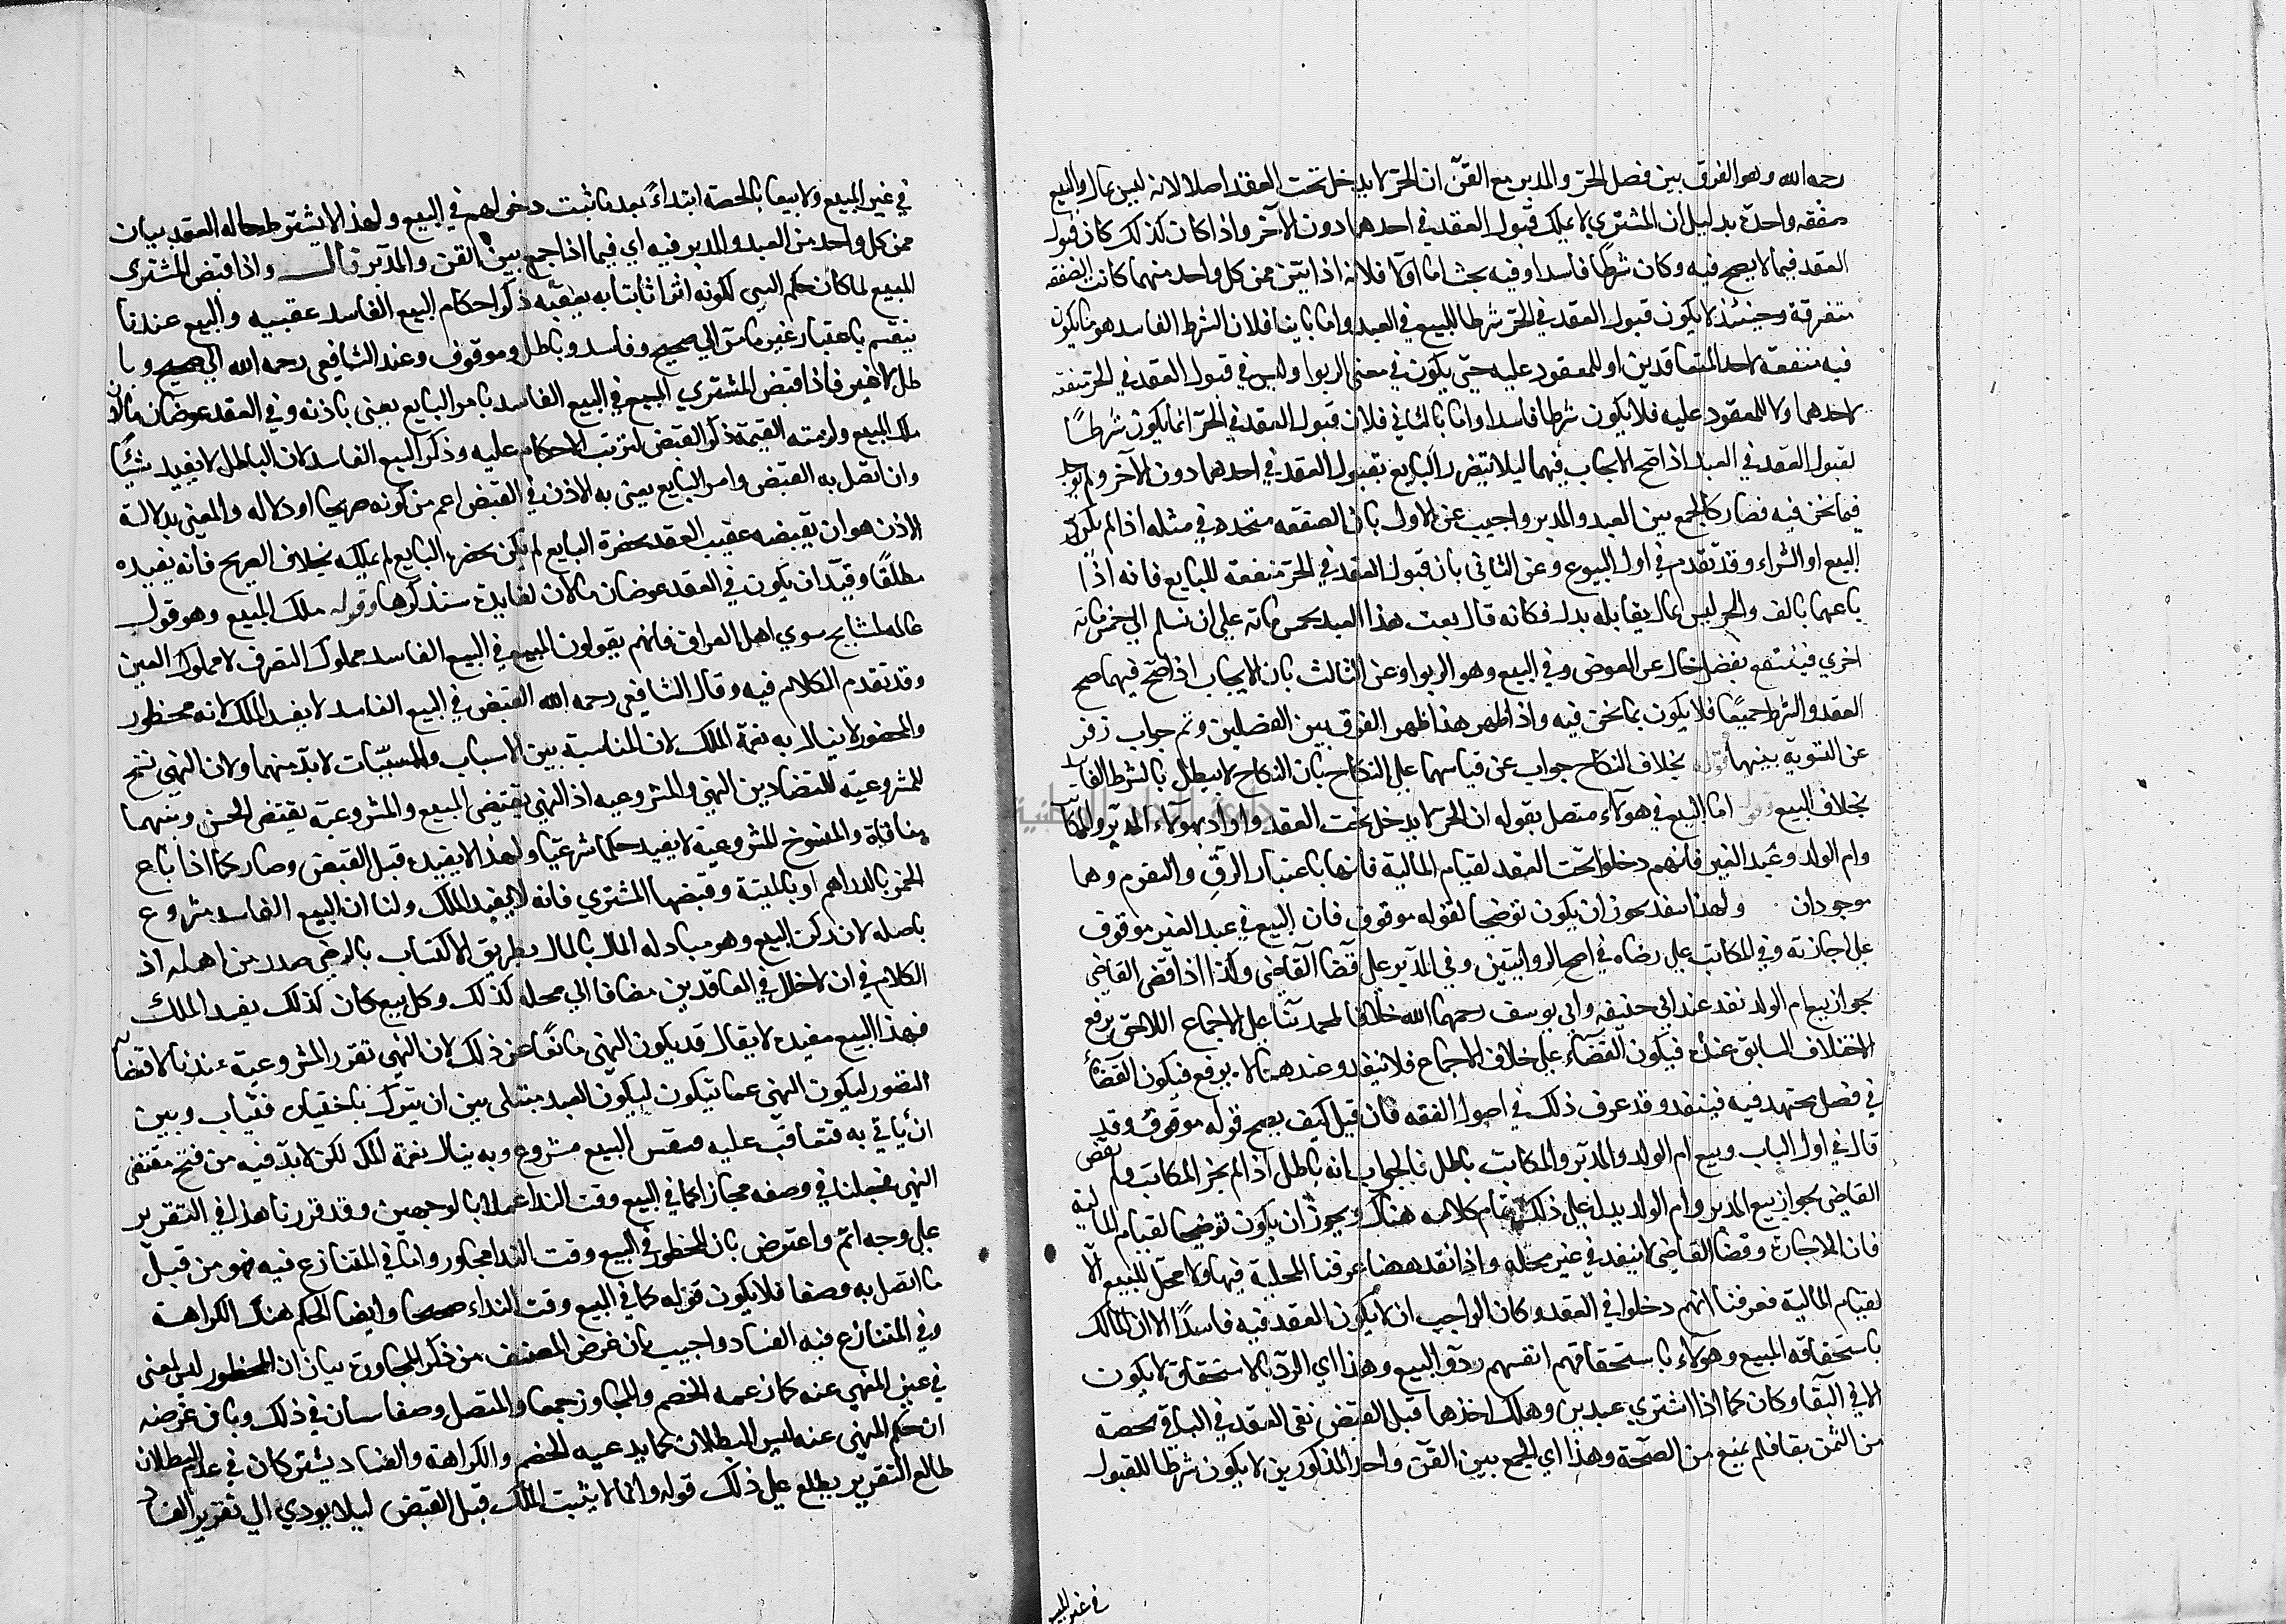 رحمه الله وهو الفرق بين فصل الحر والمدبر مع القن ان الحر لا يدخل تحت العقد اصلا لانه ليس بمال والبيع
صفقه واحدة بدليل ان المشتري لا يملك قبول العقد في احدهما دون الآخر واذا كان كذلك كان قبول
العقد فيما لا يصح فيه وكان شرطا فاسدا وفيه بحث اما اولا فلانه اذا بيّن ثمن كل واحد منهما كانت الصفقه
متفرقة وحينئذ لا يكون قبول العقد في الحر شرطا للبيع في العبد واما ثانيا فلان الشرط الفاسد هو ما يكون
فيه منفعة لاحد المتعاقدين او للمعقود عليه حتى يكون في معنى الربوا وليس في قبول العقد في الحر منفعه
لاحدهما ولا للمعقود عليه فلا يكون شرطا فاسدا واما بالثالث فلان قبول العقد في الحر انما يكون شرطًا
لقبول العقد في العبد اذا صح الايجاب فيهما ليلا يتضرر البايع بقبول العقد في احدهما دون الآخر ولم يوجد
فيما نحن فيه فصار كالجمع بين العبد والمدبر واجيب عن الاول بان الصفقه متحدة في مثله اذا لم يكرر
البيع او الشراء وقد تقدم في اول البيوع وعن الثاني بان قبول العقد في الحر منفعة للبايع فانه اذا
باعهما بالف والحر ليس بمال يقابله بدل فكانه قال بعت هذا العبد بخمس مائه على ان تسلم الي خمس مائه
اخرى فينتفع بفضل خال عن العوض وفي البيع وهو الربوا وعن الثالث بان الايجاب اذا صح فيهما صح
العقد والشرط جميعًا فلا يكون بما نحن فيه واذا ظهر هذا ظهر الفرق بين الفصلين وتم جواب زفر
عن التسوية بينهما قوله بخلاف النكاح جواب عن قياسهما على النكاح بان النكاح لا يبطل بالشرط الفاسد
بخلاف البيع قوله اما البيع في هولاء متصل بقوله ان الحر لا يدخل تحت العقد واراد بهولاء المدبر والمكاتب
وام الولد وعبد الغير فانهم دخلوا تحت العقد لقيام المالية فانها باعتبار الرق والتقوم وهما
موجودان ولهذا ينفذ يجوز ان يكون توضيحا لقوله موقوف فان البيع في عبد الغير موقوف
على اجازته وفي المكاتب على رضاه في اصح الروايتين وفي المدبر على قضاء القاضي وكذا اذا قضى القاضي
بجواز بيع ام الولد نفذ عند ابي حنيفه وابي يوسف رحمهما الله خلافا لمحمد بناء على ان الاجماع اللاحق يرفع
الاختلاف السابق عنده فيكون القضاء على خلاف الاجماع فلا ينفذ وعندهما لا يرفع فيكون القضاء
في فصل مجتهد فيه فينفذ وقد عرف ذلك في اصول الفقه فان قيل كيف يصح قوله موقوف وقد
قال في اول الباب وبيع ام الولد والمدبر والمكاتب باطل فالجواب انه باطل اذا لم يجز المكاتب ولم يقض
القاضي بجواز بيع المدبر وام الولد يدل على ذلك تمام كلامه هناك ويجوز ان يكون توضيحا لقيام المالية
فان الاجازة وقضا القاضي لا ينفذ في غير محله واذا نفذ ههنا عرفنا المحلية فيها ولا محل للبيع الا
لقيام المالية فعرفنا انهم دخلوا في العقد وكان الواجب ان لا يكون العقد فيه فاسدًا الا ان المالك
باستحقاقه المبيع وهولاء باستحقاقهم انفسهم ردوا البيع وهذا اي الرد بالاستحقاق لا يكون
الا في البقا وكان كما اذا اشترى عبدين وهلك احدهما قبل القبض بقى العقد في الباقي بحصته
من الثمن بقا فلم يمنع من الصحة وهذا اي الجمع بين القن واحد المذكورين لا يكون شرطا للقبول
في غير المبيع
في غير المبيع ولا بيعا بالحصة ابتداءً بعد ما ثبت دخولهم في البيع ولهذا لا يشترط حاله العقد بيان
ثمن كل واحد من العبد والمدبر فيه اي فيما اذا جمع بين القن والمدبر قال واذا قبض المشترى
المبيع لما كان حكم الشي لكونه اثرا ثابتا به يعقبه ذكر احكام البيع الفاسد عقيبه والبيع عندنا
ينقسم باعتبار غير ما مر الي صحيح وفاسد وباطل وموقوف وعند الشافعي رحمه الله الي صحيح وبا
طل لا غير فاذا قبض المشتري المبيع في البيع الفاسد بامر البايع يعنى باذنه وفي العقد عوضان مالان
ملك المبيع ولزمته القيمة ذكر القبض لترتب الاحكام عليه وذكر البيع الفاسد لان الباطل لا يفيد شيئًا
وان اتصل به القبض وامر البايع يعنى به الاذن في القبض اعم من كونه صريحا او دلاله والمعني بدلالة
الاذن هو ان يقبضه عقيب العقد بحضرة البايع لم يكن بحضرة البايع لم يملكه بخلاف الصريح فانه يفيده
مطلقًا وقيّد ان يكون في العقد عوضان مالان لفايدة سنذكرها وقوله ملك المبيع وهو قول
عامه المشايخ سوي اهل العراق فانهم يقولون المبيع في البيع الفاسد مملوك التصرف لا مملوك العين
وقد تقدم الكلام فيه وقال الشافعي رحمه الله القبض في البيع الفاسد لا يفيد الملك لانه محظور
والمحضور لا ينال به نعمة الملك لان المناسبة بين الاسباب والمسببات لا بد منهما ولان النهي نسخ
للمشروعية للتضاد بين النهي والمشروعيه اذ النهي يقتضي المبيع والمشروعية يقتضي الحسن وبينهما
منافاة والمنسوخ للمشروعية لا يفيد حكما شرعيا ولهذا لا يفيده قبل القبض وصار كما اذا باع
الخمر بالدراهم او بالميتة وقبضها المشتري فانه لا يفيد الملك ولنا ان البيع الفاسد مشروع
باصله لان ركن البيع وهو مبادله المال بالمال بطريق الاكتساب بالرضي صدر من اهله اذ
الكلام في ان لا خلل في العاقدين مضافا الي محله كذلك وكل بيع كان كذلك يفيد الملك
فهذا البيع مفيده لا يقال قد يكون النهي مانعًا عن ذلك لان النهي تقرر المشروعية عندنا لاقتضائه
التصور ليكون النهي عما يتكون ليكون العبد مبتلى بين ان يترك باختياره فيثاب وبين
ان ياتي به فتعاقب عليه فنفس البيع مشروع وبه ينال نعمة الملك لكن لا بد فيه من قبح مقتضى
النهي فجعلنا في وصفه مجازا كما في البيع وقت النداء عملا بالوجهين وقد قررنا هذا في التقرير
على وجه اتم واعترض بان المحظور في البيع وقت النداء مجاور واما في المتنازع فيه فهو من قبل
ما اتصل به وصفا فلا يكون قوله كما في البيع وقت النداء صحيحا وايضا الحكم هناك الكراهة
وفي المتنازع فيه الفساد واجيب بان غرض المصنف من ذكر المجاورة بيان ان المحظور ليس لمعنى
في عين المنهي عنه كما زعمه الخصم والمجاور جمعا والمتصل وصفا سيان في ذلك وبان غرضه
ان حكم المنهي عنه ليس البطلان كما يدعيه الخصم والكراهة والفساد يشتركان في عدم البطلان
طالع التقرير يطلع على ذلك قوله وانما لا يثبت الملك قبل القبض ليلا يودي الي تقرير الفساد